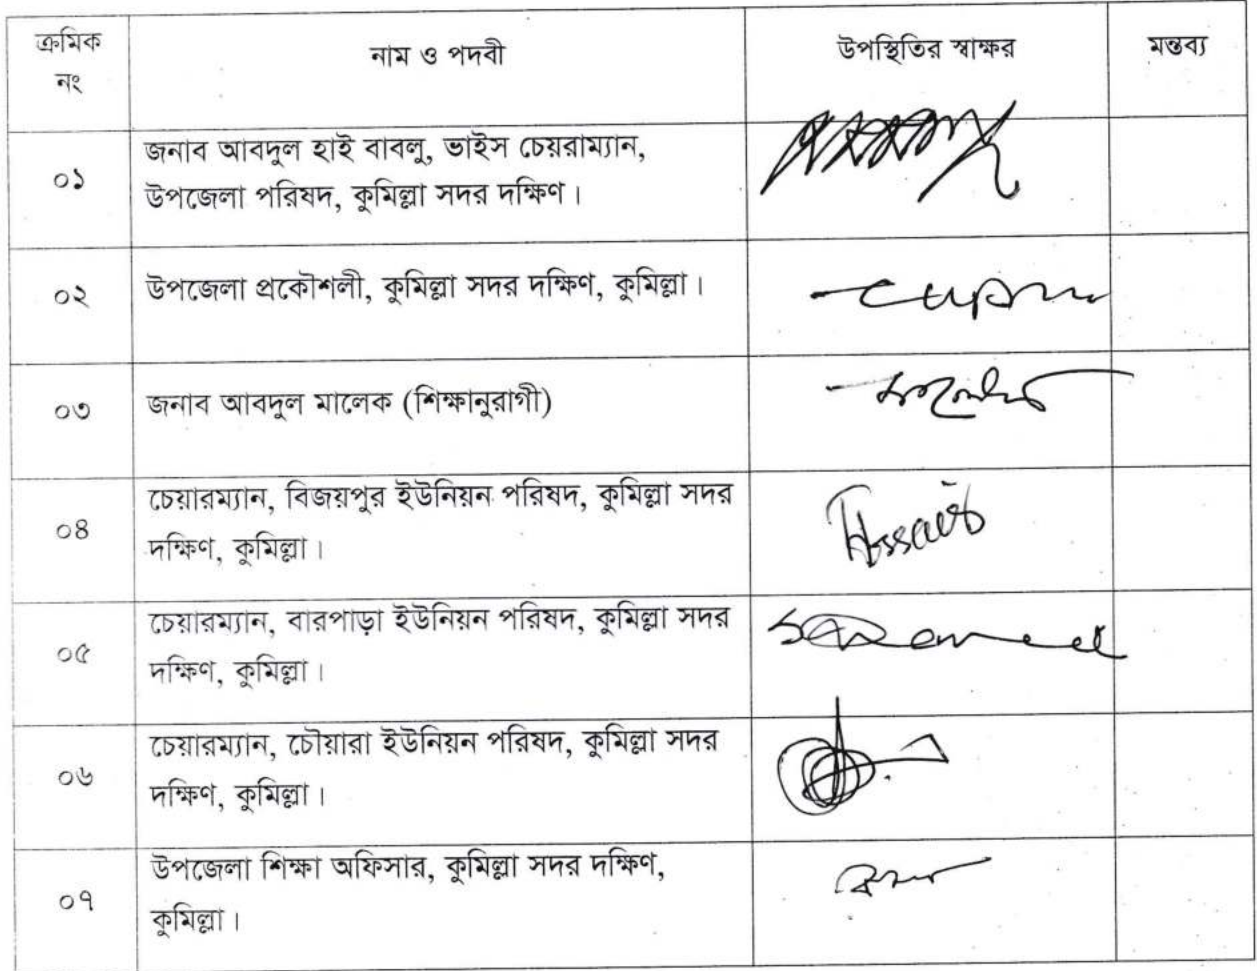 ক্রমিক নাম ও পদবী উপস্থিতির স্বাক্ষর মন্তব্য
নং
০১ জনাব আবদুল হাই বাবলু, ভাইস চেয়রাম্যান,
উপজেলা পরিষদ, কুমিল্লা সদর দক্ষিণ।
০২ উপজেলা প্রকৌশলী, কুমিল্লা সদর দক্ষিণ, কুমিল্লা।
০৩ জনাব আবদুল মালেক (শিক্ষানুরাগী)
০৪ চেয়ারম্যান, বিজয়পুর ইউনিয়ন পরিষদ, কুমিল্লা সদর
দক্ষিণ, কুমিল্লা।
০৫ চেয়ারম্যান, বারপাড়া ইউনিয়ন পরিষদ, কুমিল্লা সদর
দক্ষিণ, কুমিল্লা।
০৬ চেয়ারম্যান, চৌয়ারা ইউনিয়ন পরিষদ, কুমিল্লা সদর
দক্ষিণ, কুমিল্লা।
০৭ উপজেলা শিক্ষা অফিসার, কুমিল্লা সদর দক্ষিণ,
কুমিল্লা।